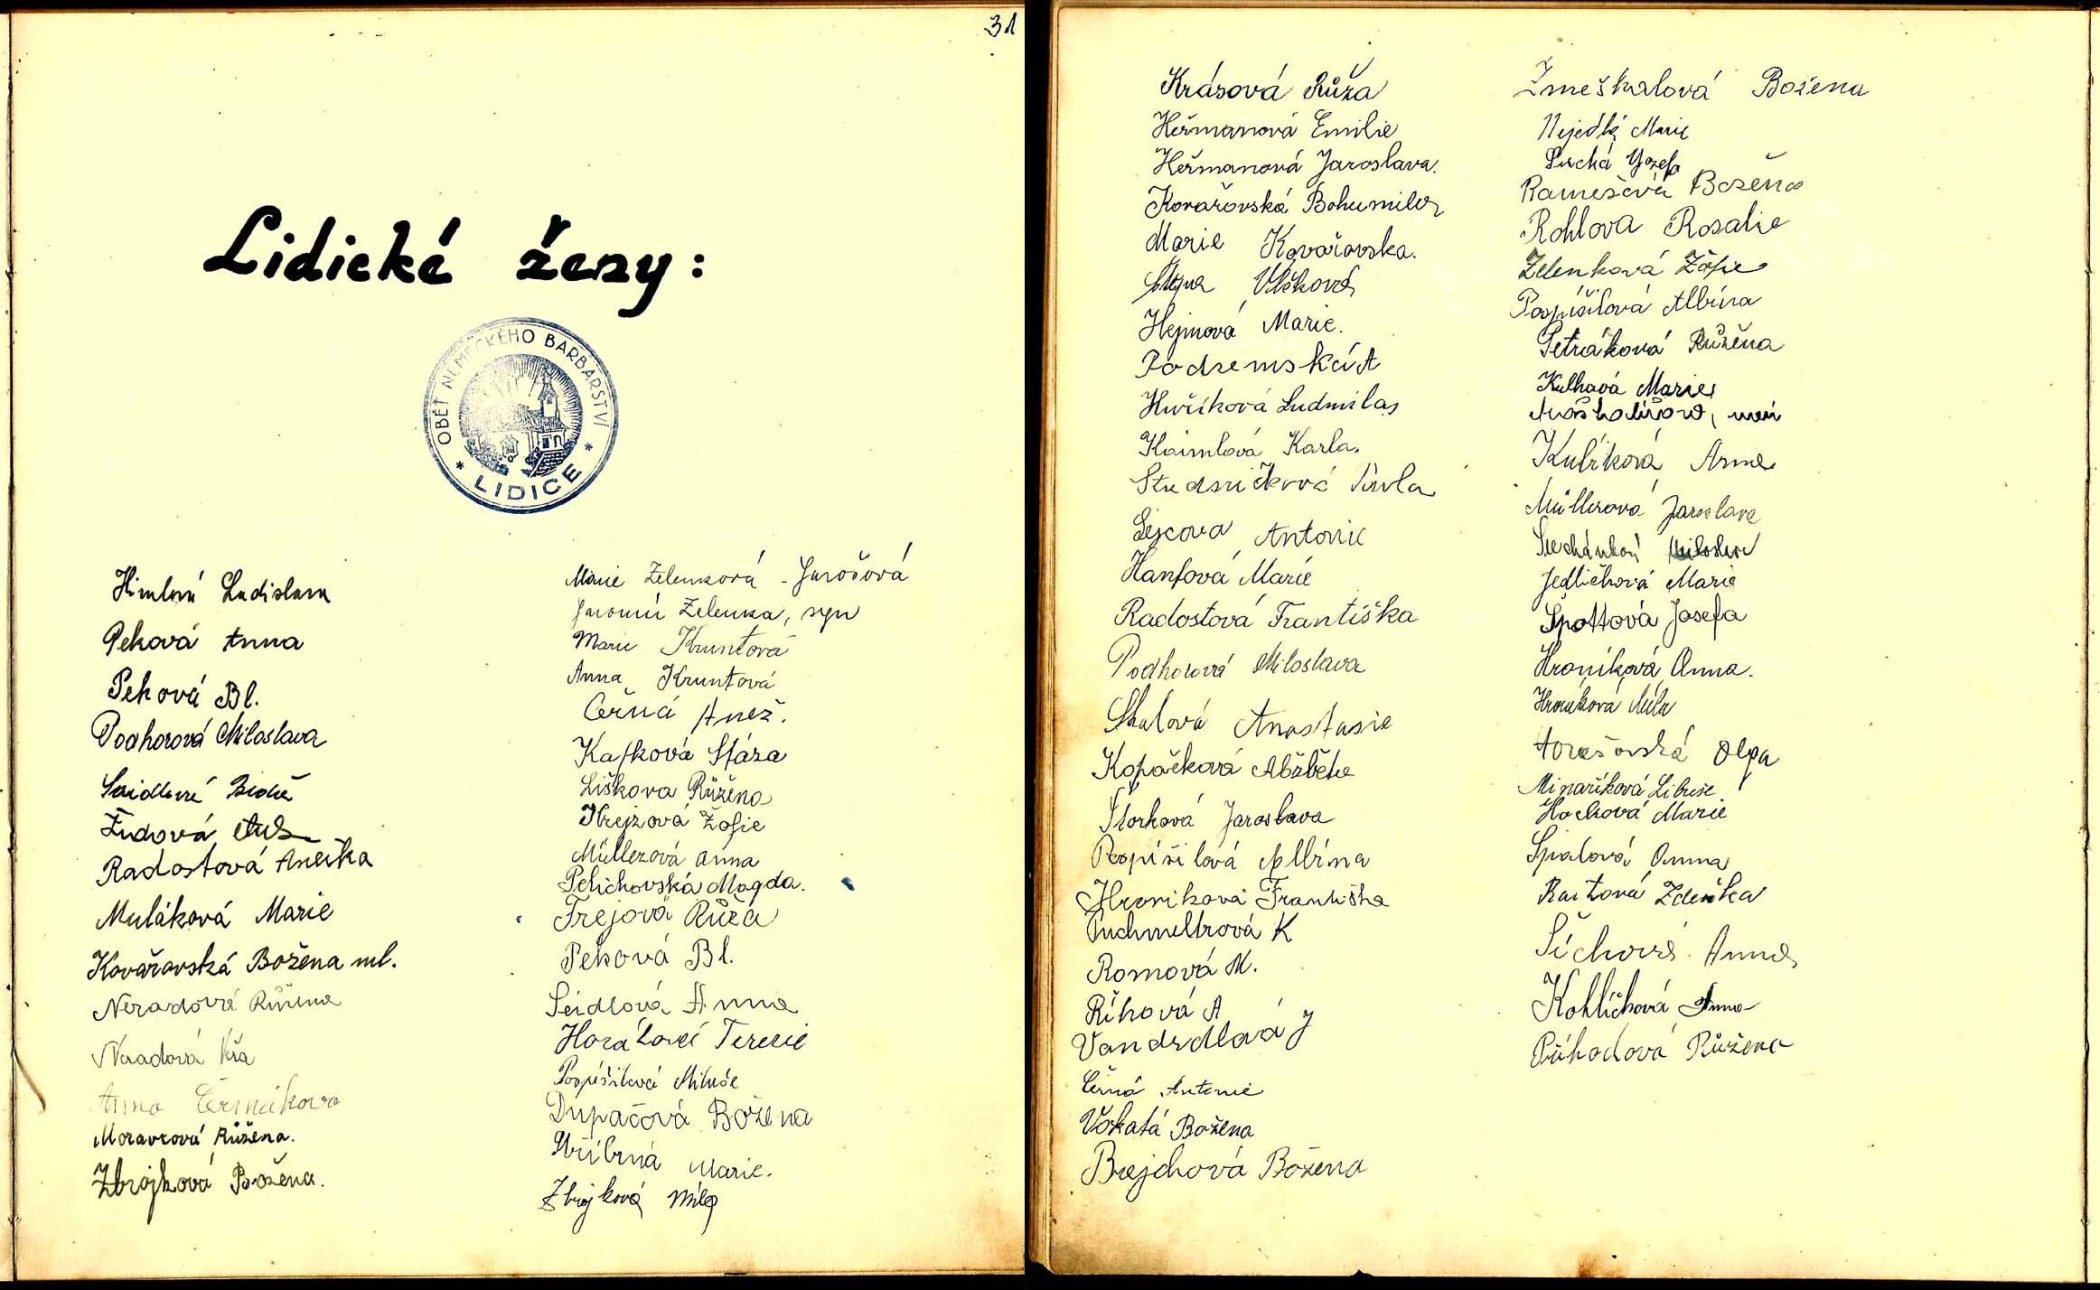 31
Lidické ženy:
OBĚŤ NĚMECKÉHO BARBARSTVÍ
* LIDICE *
Ladislava
Peková Anna
Peková Bl.
Podhorová Miloslava
Židová
Radostová Anežka
Muláková Marie
Kovařovská Božena ml.
Neradová Růžena
Neradová
Anna Čermáková
Moravcová Růžena.
Zbrojková Božena.
Marie Zelenková - Jarošová
Jaromír Zelenka, syn
Marie Kruntová
Anna Kruntová
Černá Anež.
Kafková Stáza
Liškova Růžena
Krejzová Žofie
Müllerová Anna
Pelichovská Magda.
Frejová Růža
Peková Bl.
Seidlová Anna
Terezie
Pospíšilová Miluše
Dupačová Božena
Stříbrná Marie.
Zbrojková Míla
Krásová Růža
Heřmanová Emilie
Heřmanová Jaroslava.
Kovařovská Bohumila
Marie Kovařovska.
Vlčková
Hejmová Marie.
Podzemská A
Huříková Ludmila
Kaimlová Karla.
Studničková Pavla
Antonie
Hanfová Marie
Radostová Františka
Podhorová Miloslava
Skalová Anastasie
Kopáčková Alžběta
Štorková Jaroslava
Pospíšilová Albína
Hroníková Františka
Puchmeltrová K
Romová M.
Říhová A
Vandrdlová J
Černá Antonie
Vokatá Božena
Brejchová Božena
Zmeškalová Božena
Nejedlá Marie
Suchá Josefa
Ramešová Božena
Rohlova Rosalie
Zelenková Žofie
Pospíšilová Albína
Petráková Růžena
Kulhavá Marie
Kubíková Anna
Müllerová Jaroslava
Jedličková Marie
Špottová Josefa
Hroníková Anna.
Hroníková Míla
Olga
Minaříková Libuše
Hocková Marie
Spalová Anna
Bartová Zdenka
Síchová Anna
Kohlíčková Anna
Příhodová Růžena